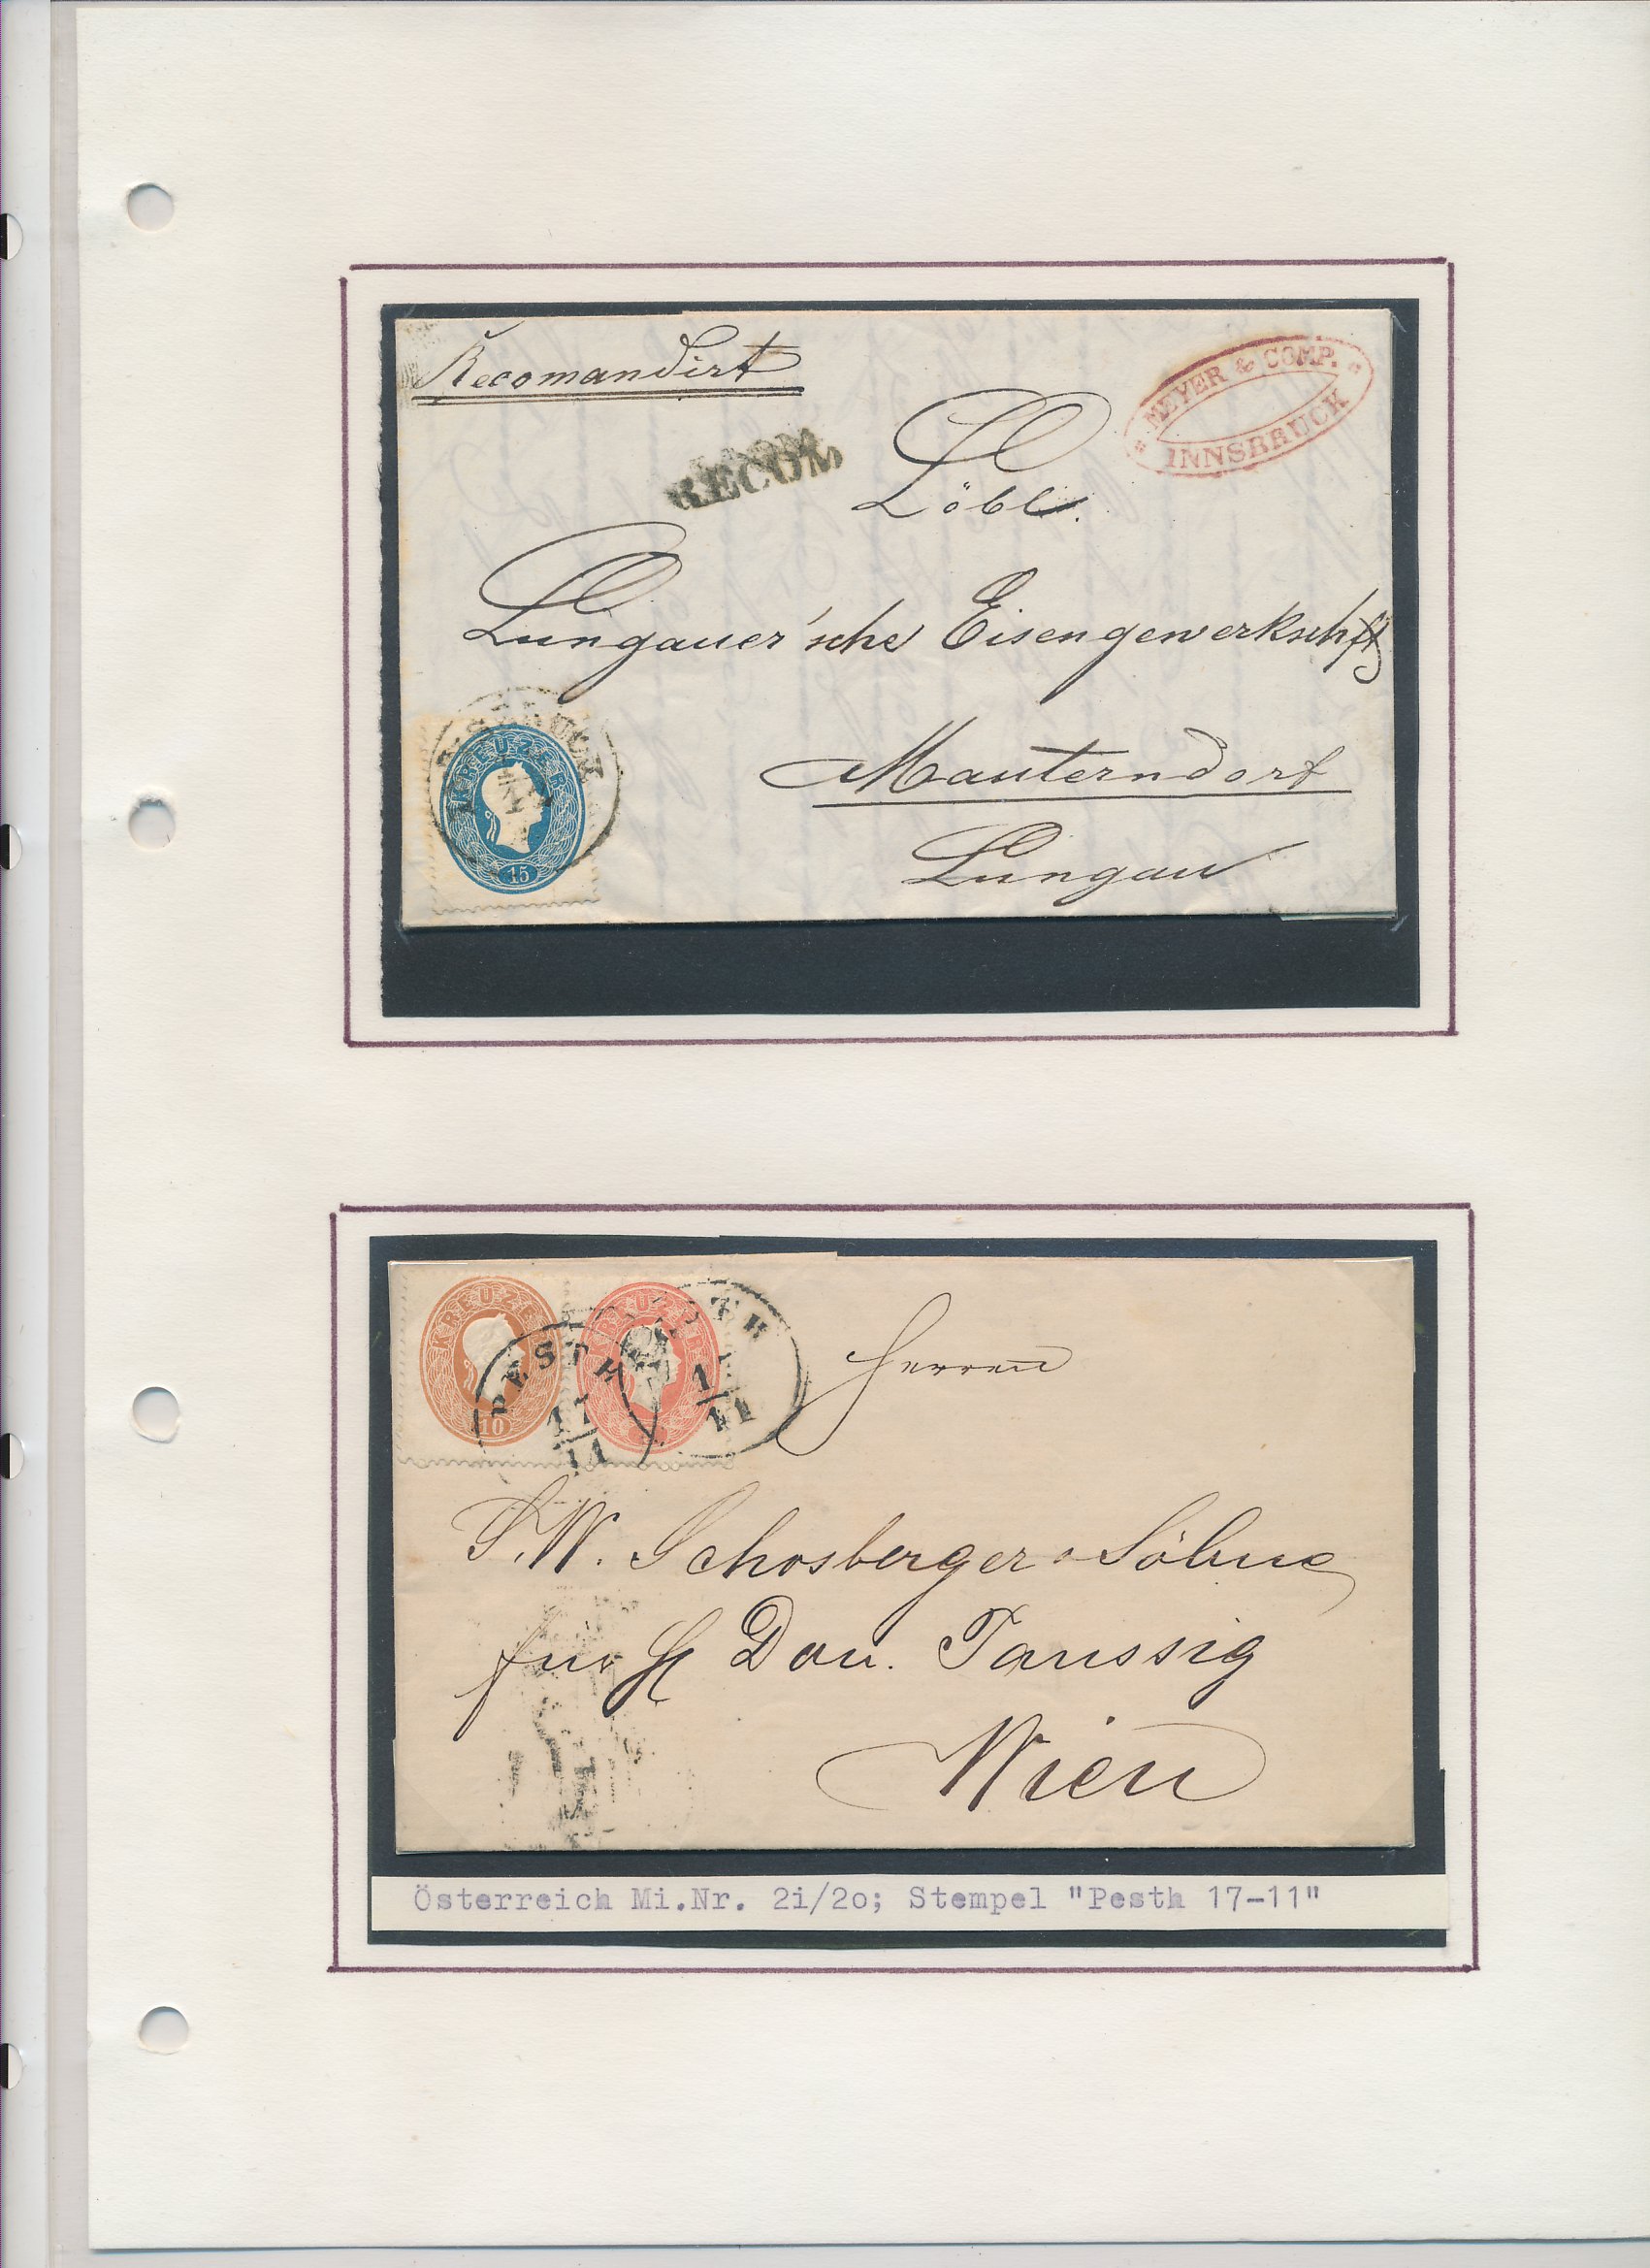 Recomandirt
MEYER & COMP.
INNSBRUCK
RECOM
Löbl.
Lungauer'sche Eisengewerkschft
INNSBRUCK
KREUZER
15
Mauterndorf
Lungau
KREUZER
10
KREUZER
PESTH
17
11
PESTH
17
11
Herren
S. W. Schosberger & Söhne
für H Dav. Taussig
Wien
Österreich Mi.Nr. 2i/2o; Stempel "Pesth 17-11"